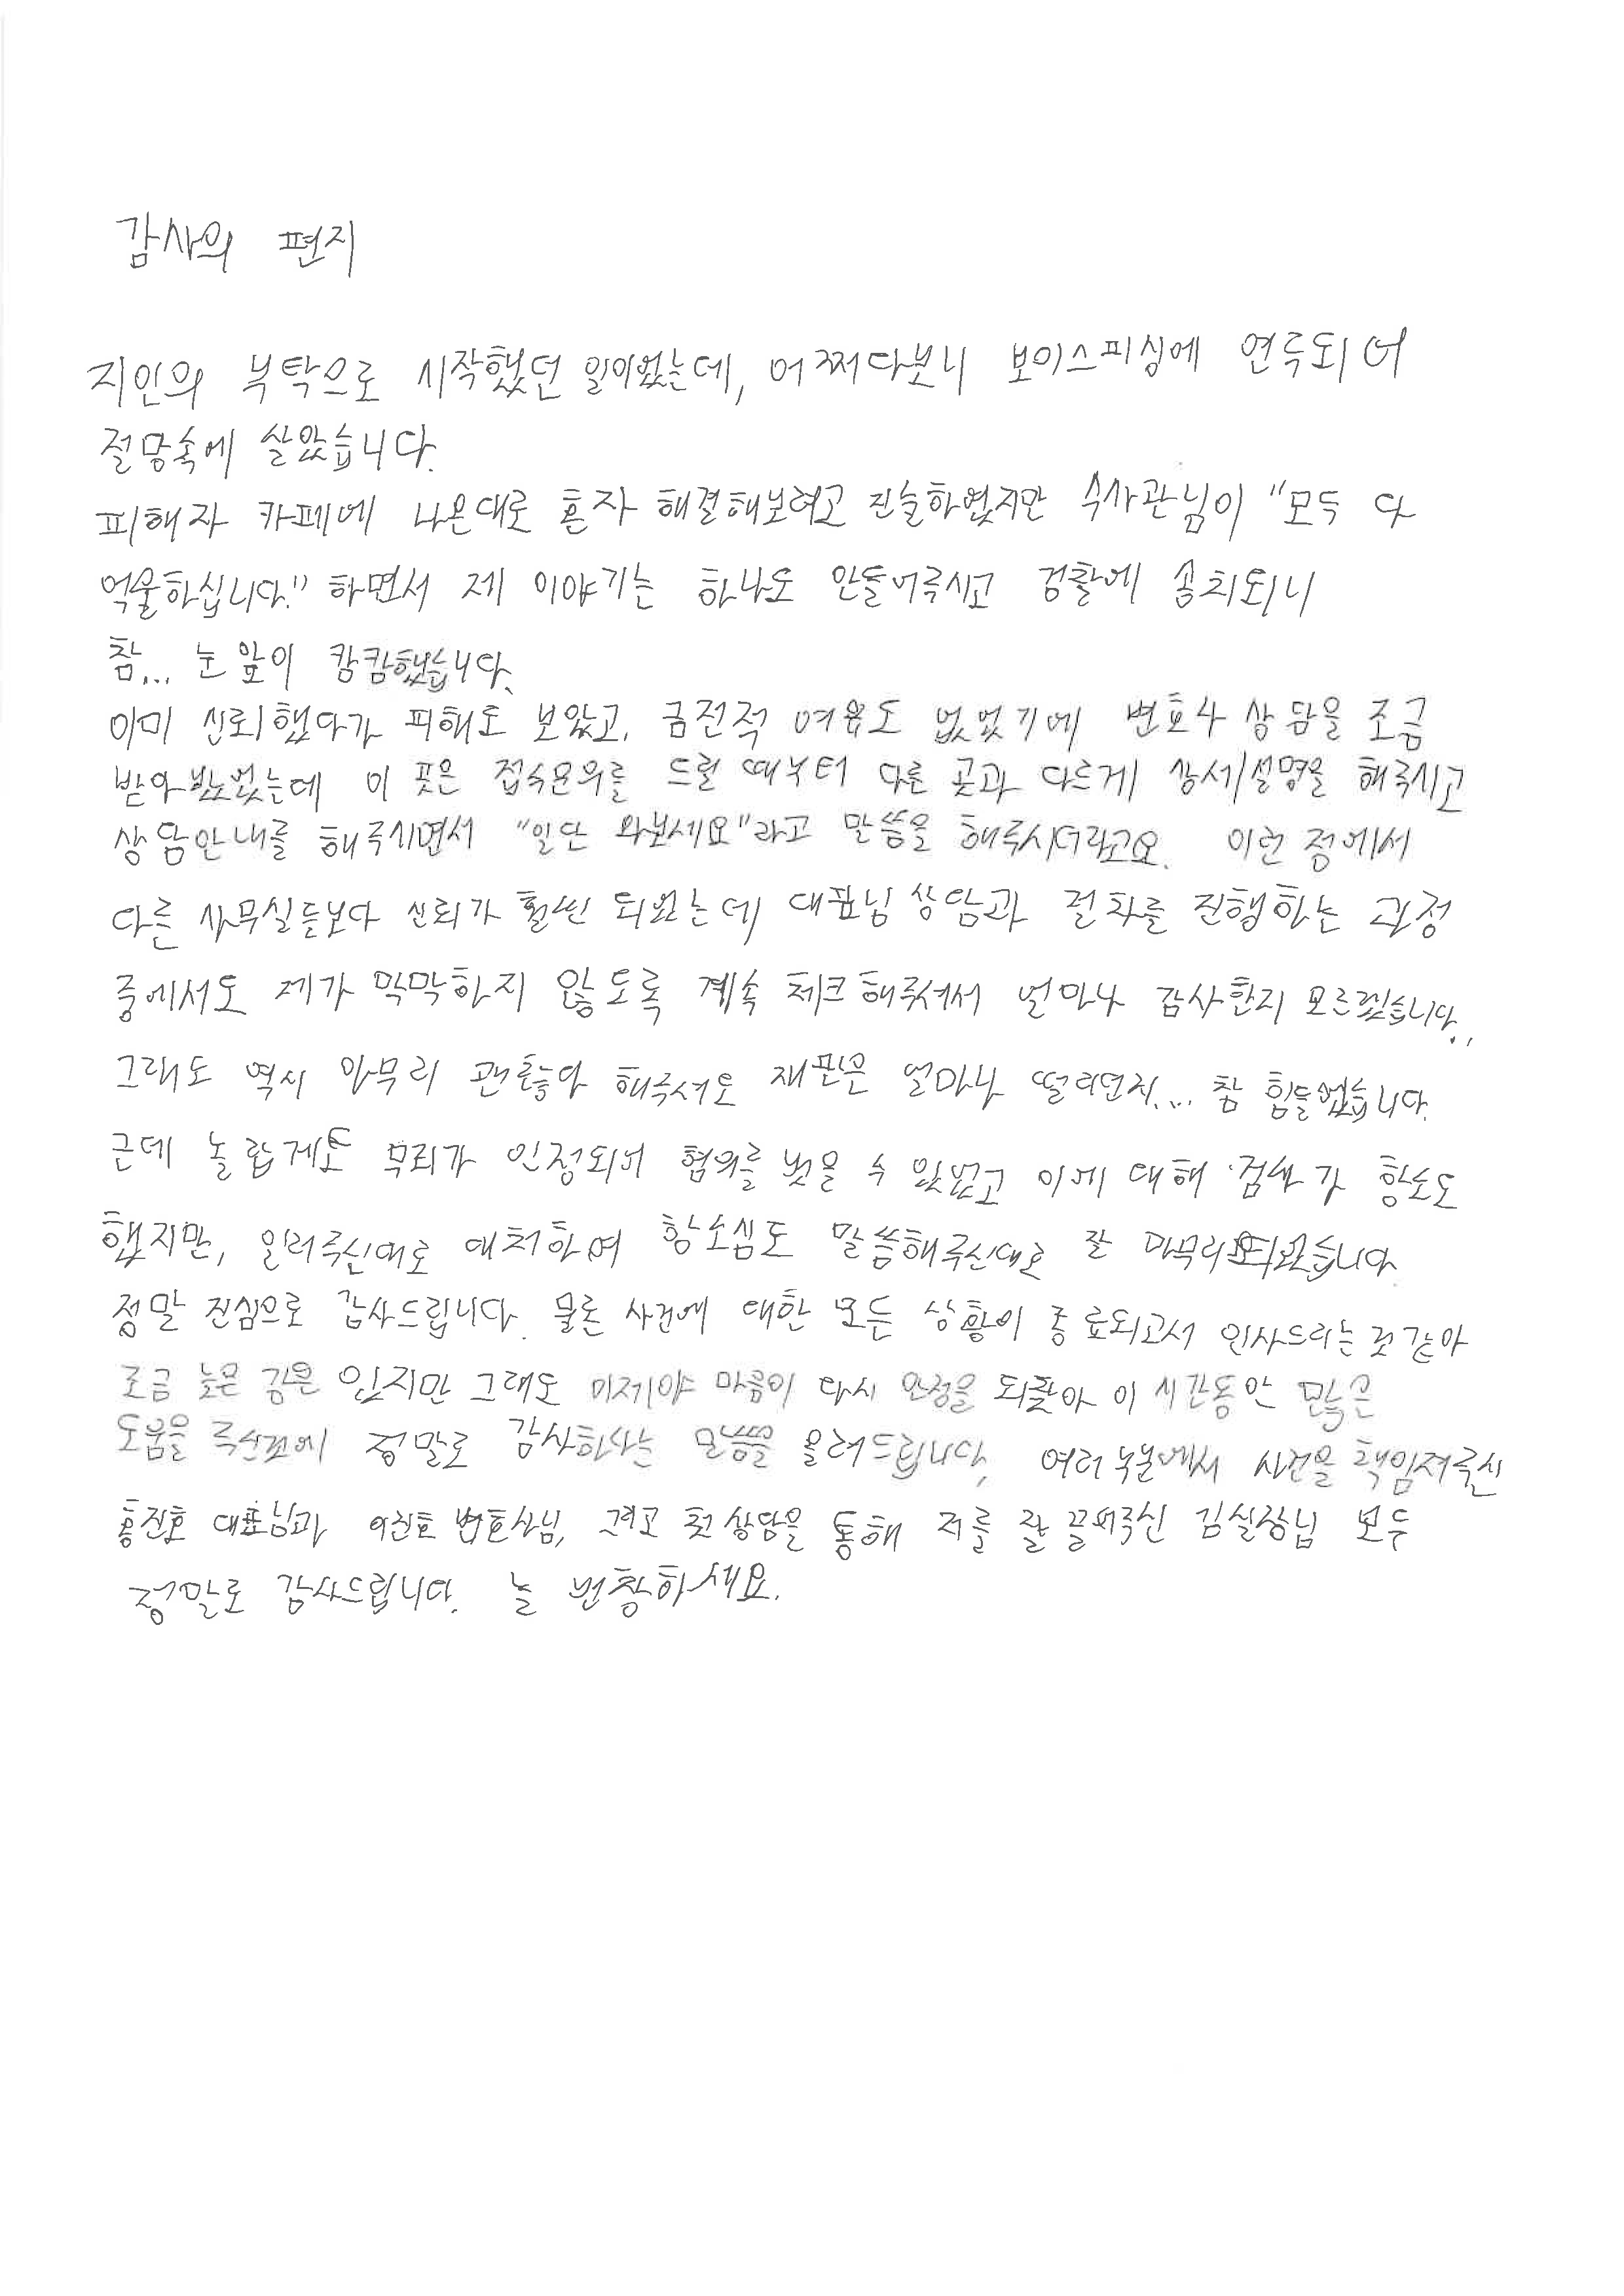 감사의 편지
지인의 부탁으로 시작했던 일이었는데, 어쩌다보니 보이스피싱에 연루되어
절망속에 살았습니다.
피해자 카페에 나온대로 혼자 해결해보려고 진술하였지만 수사관님이 "모두 다
억울하십니다." 하면서 제 이야기는 하나도 안들어주시고 검찰에 송치되니
참... 눈 앞이 캄캄했습니다.
이미 신뢰했다가 피해도 보았고, 금전적 여유도 없었기에 변호사 상담을 조금
받아봤었는데 이 곳은 접수문의를 드릴 때부터 다른 곳과 다르게 상세설명을 해주시고
상담안내를 해주시면서 "일단 와보세요"라고 말씀을 해주시더라고요. 이런 점에서
다른 사무실들보다 신뢰가 훨씬 되었는데 대표님 상담과 절차를 진행하는 과정
중에서도 제가 막막하지 않도록 계속 체크해주셔서 얼마나 감사한지 모르겠습니다..
그래도 역시 아무리 괜찮아 해주셔도 재판은 얼마나 떨리던지... 참 힘들었습니다.
근데 놀랍게도 무죄가 인정되어 혐의를 벗을 수 있었고 이에 대해 검사가 항소도
했지만, 알려주신대로 대처하여 항소심도 말씀해주신대로 잘 마무리되었습니다
정말 진심으로 감사드립니다. 물론 사건에 대한 모든 상황이 종료되고서 인사드리는 것 같아
조금 늦은 감은 있지만 그래도 이제야 마음이 다시 안정을 되찾아 이 시간동안 많은
도움을 주신것에 정말로 감사하다는 말씀을 올려드립니다. 여러 부분에서 사건을 책임져주신
홍진호 대표님과 이진호 변호사님, 그리고 첫 상담을 통해 저를 잘 끌어주신 김실장님 모두
정말로 감사드립니다. 늘 번창하세요.